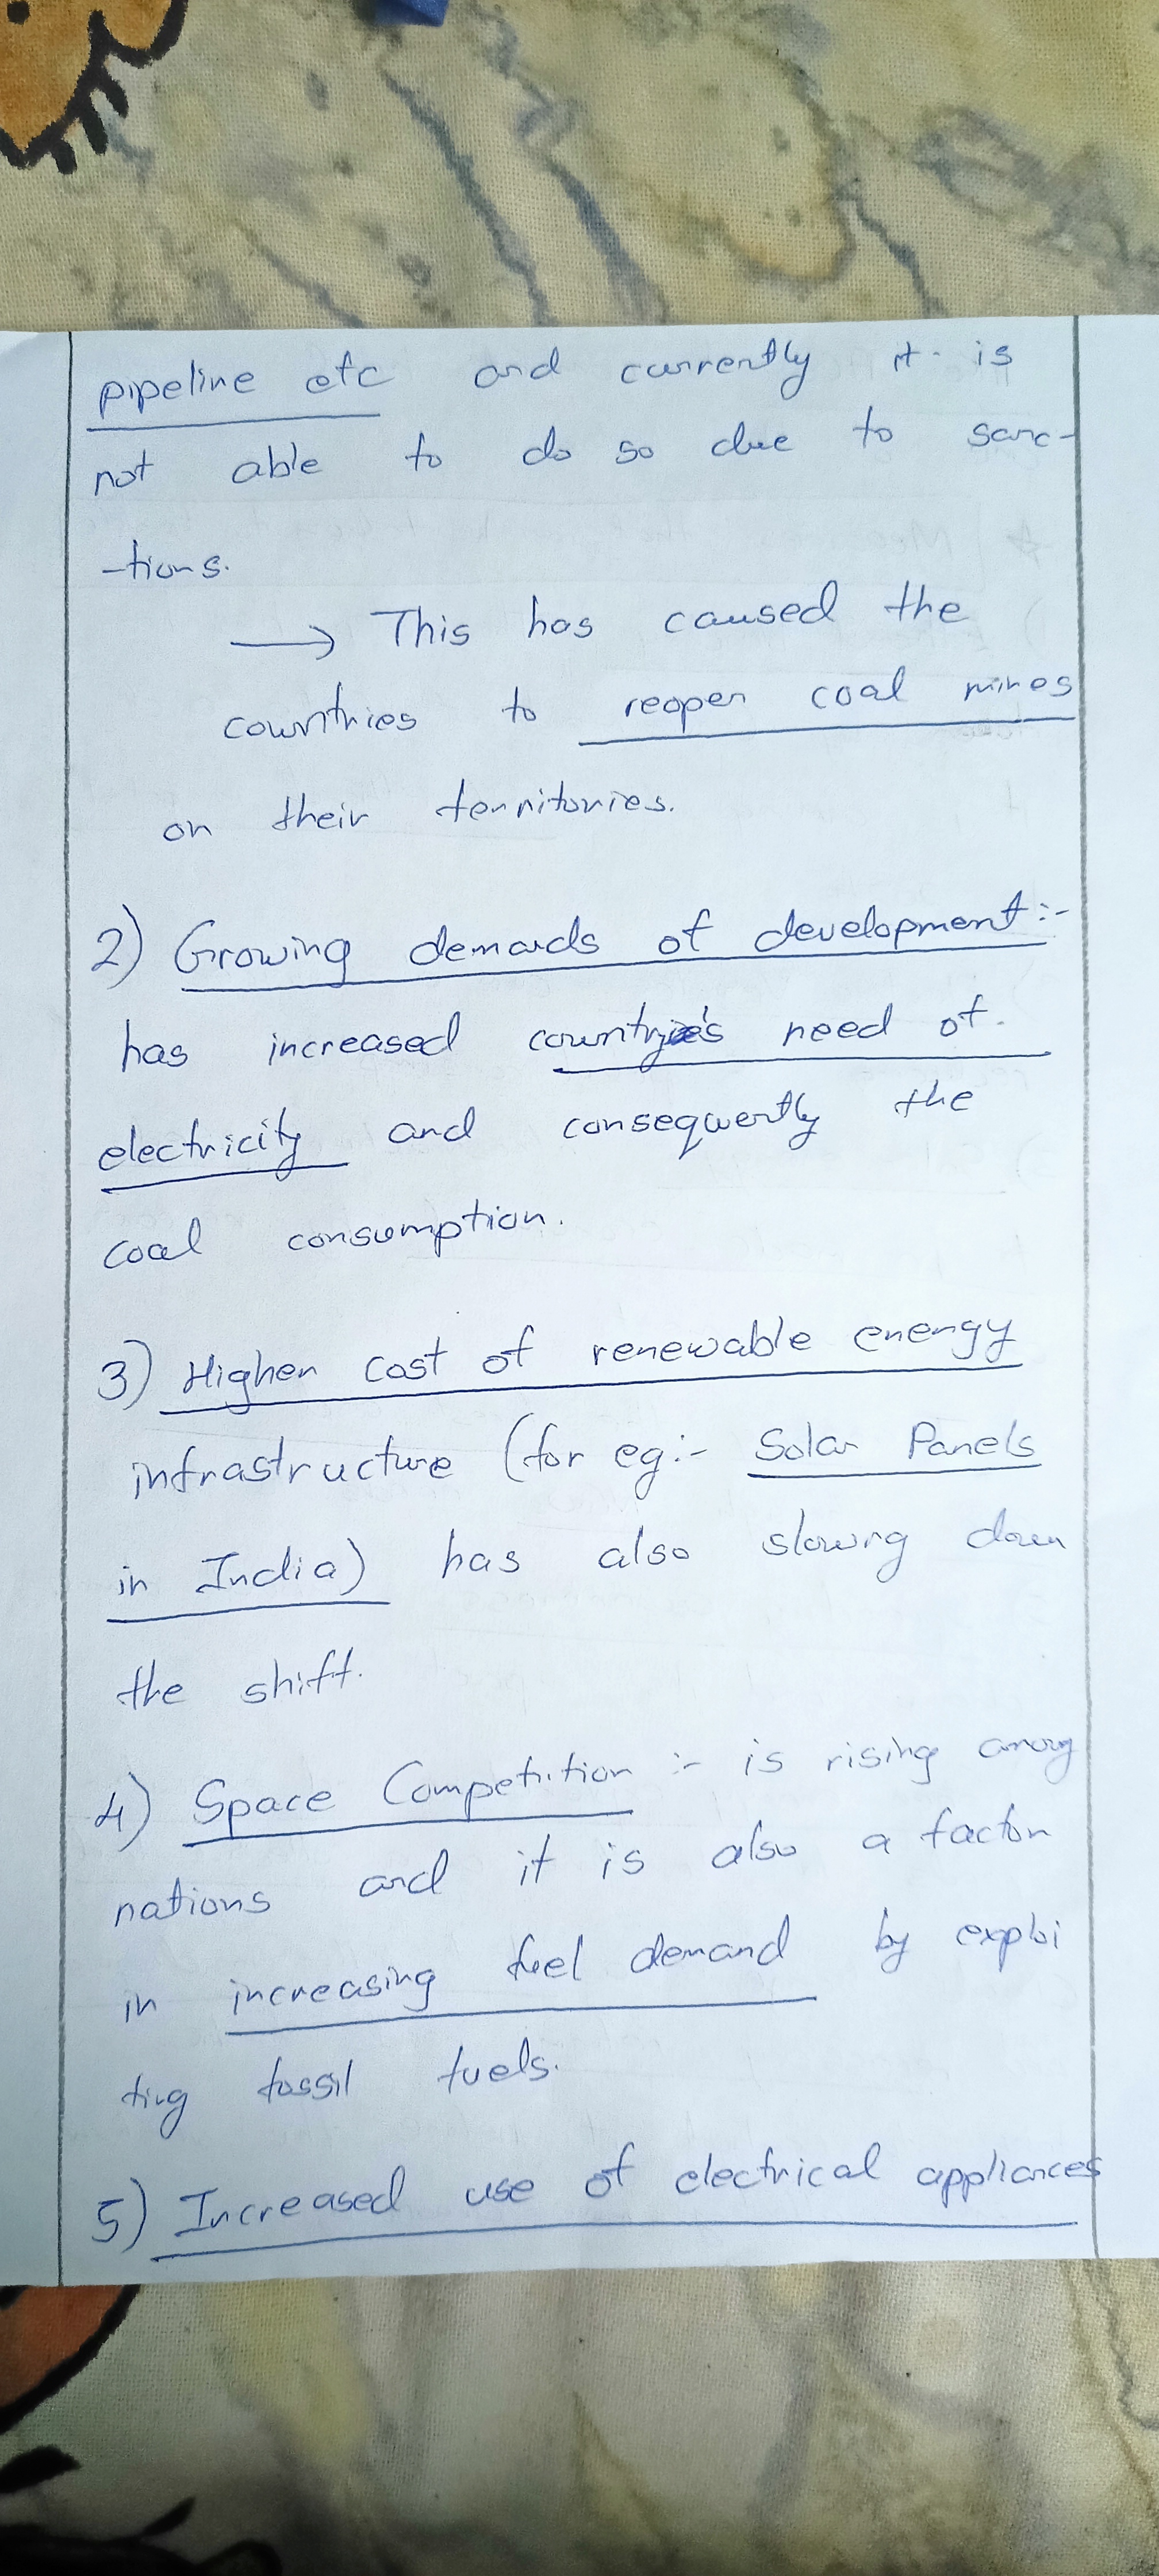 pipeline etc and currently it is
not able to do so due to sanc-
-tions.
→ This has caused the
countries to reopen coal mines
on their territories.
2) Growing demands of development:-
has increased country's need of
electricity and consequently the
coal consumption.
3) Higher cost of renewable energy
infrastructure (for eg:- Solar Panels
in India) has also slowing down
the shift.
4) Space Competition :- is rising among
nations and it is also a factor
in increasing fuel demand by exploi
ting fossil fuels.
5) Increased use of electrical appliances